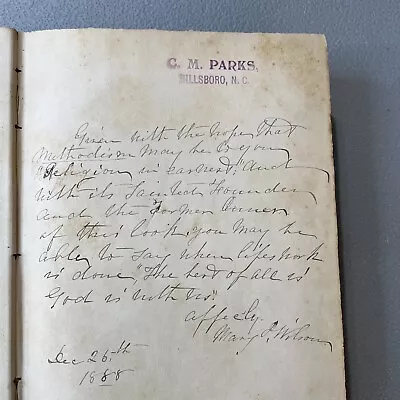 C. M. PARKS,
HILLSBORO, N. C.
Given with the hope that
Methodism may be to you
"Religion in Earnest," and
with its Sainted Founder
and the Former owner
of this book, you may be
able to say when lifes work
is done, "The best of all is
God is with us."
Affecly.
Mary P. Wilson
Dec 26th
1888